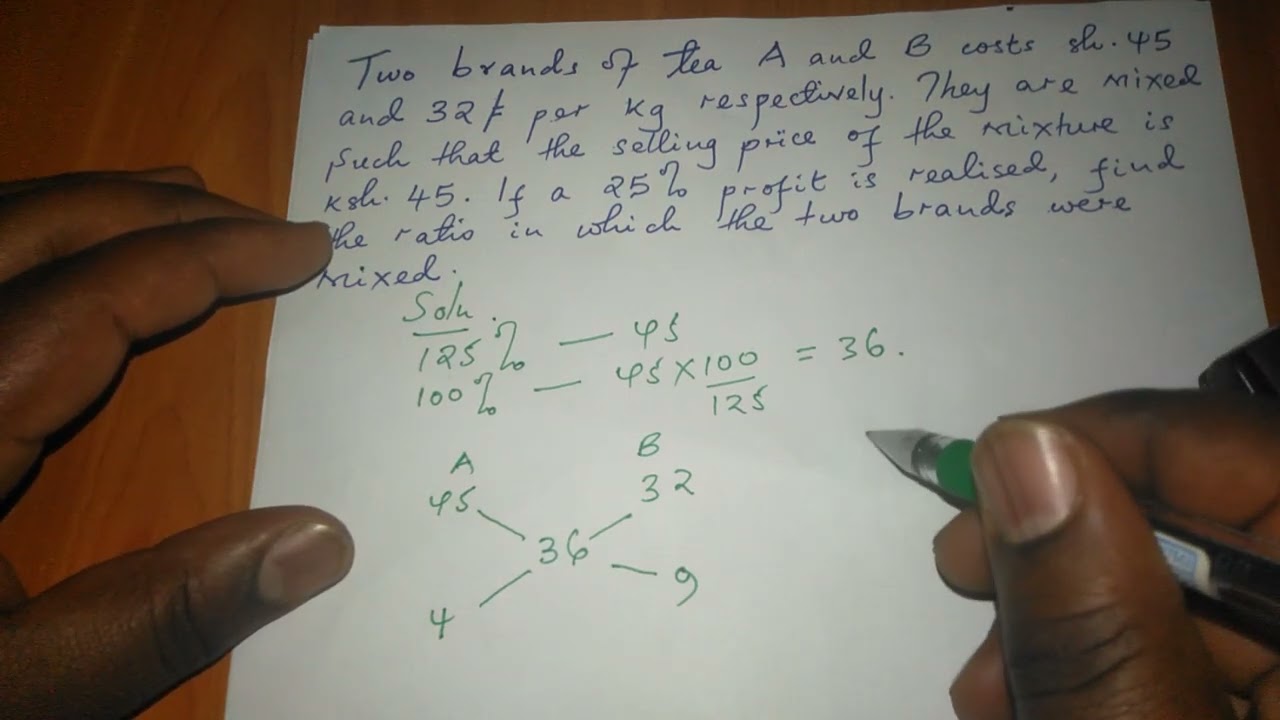 Two brands of tea A and B costs sh. 45
and 32/= per kg respectively. They are mixed
such that the selling price of the mixture is
ksh. 45. If a 25% profit is realised, find
the ratio in which the two brands were
mixed.
Soln.
125% — 45
100% — 45 × 100/125 = 36.
A B
45 32
36
4 9